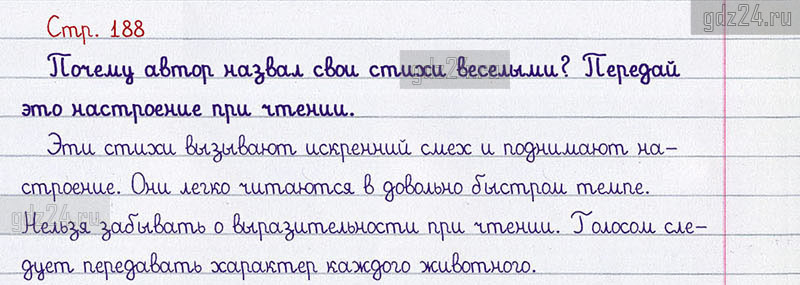 gdz24.ru
Стр. 188
Почему автор назвал свои стихи веселыми? Передай
gdz24.ru
это настроение при чтении.
Эти стихи вызывают искренний смех и поднимают на-
строение. Они легко читаются в довольно быстром темпе.
gdz24.ru
Нельзя забывать о выразительности при чтении. Голосом сле-
дует передавать характер каждого животного.